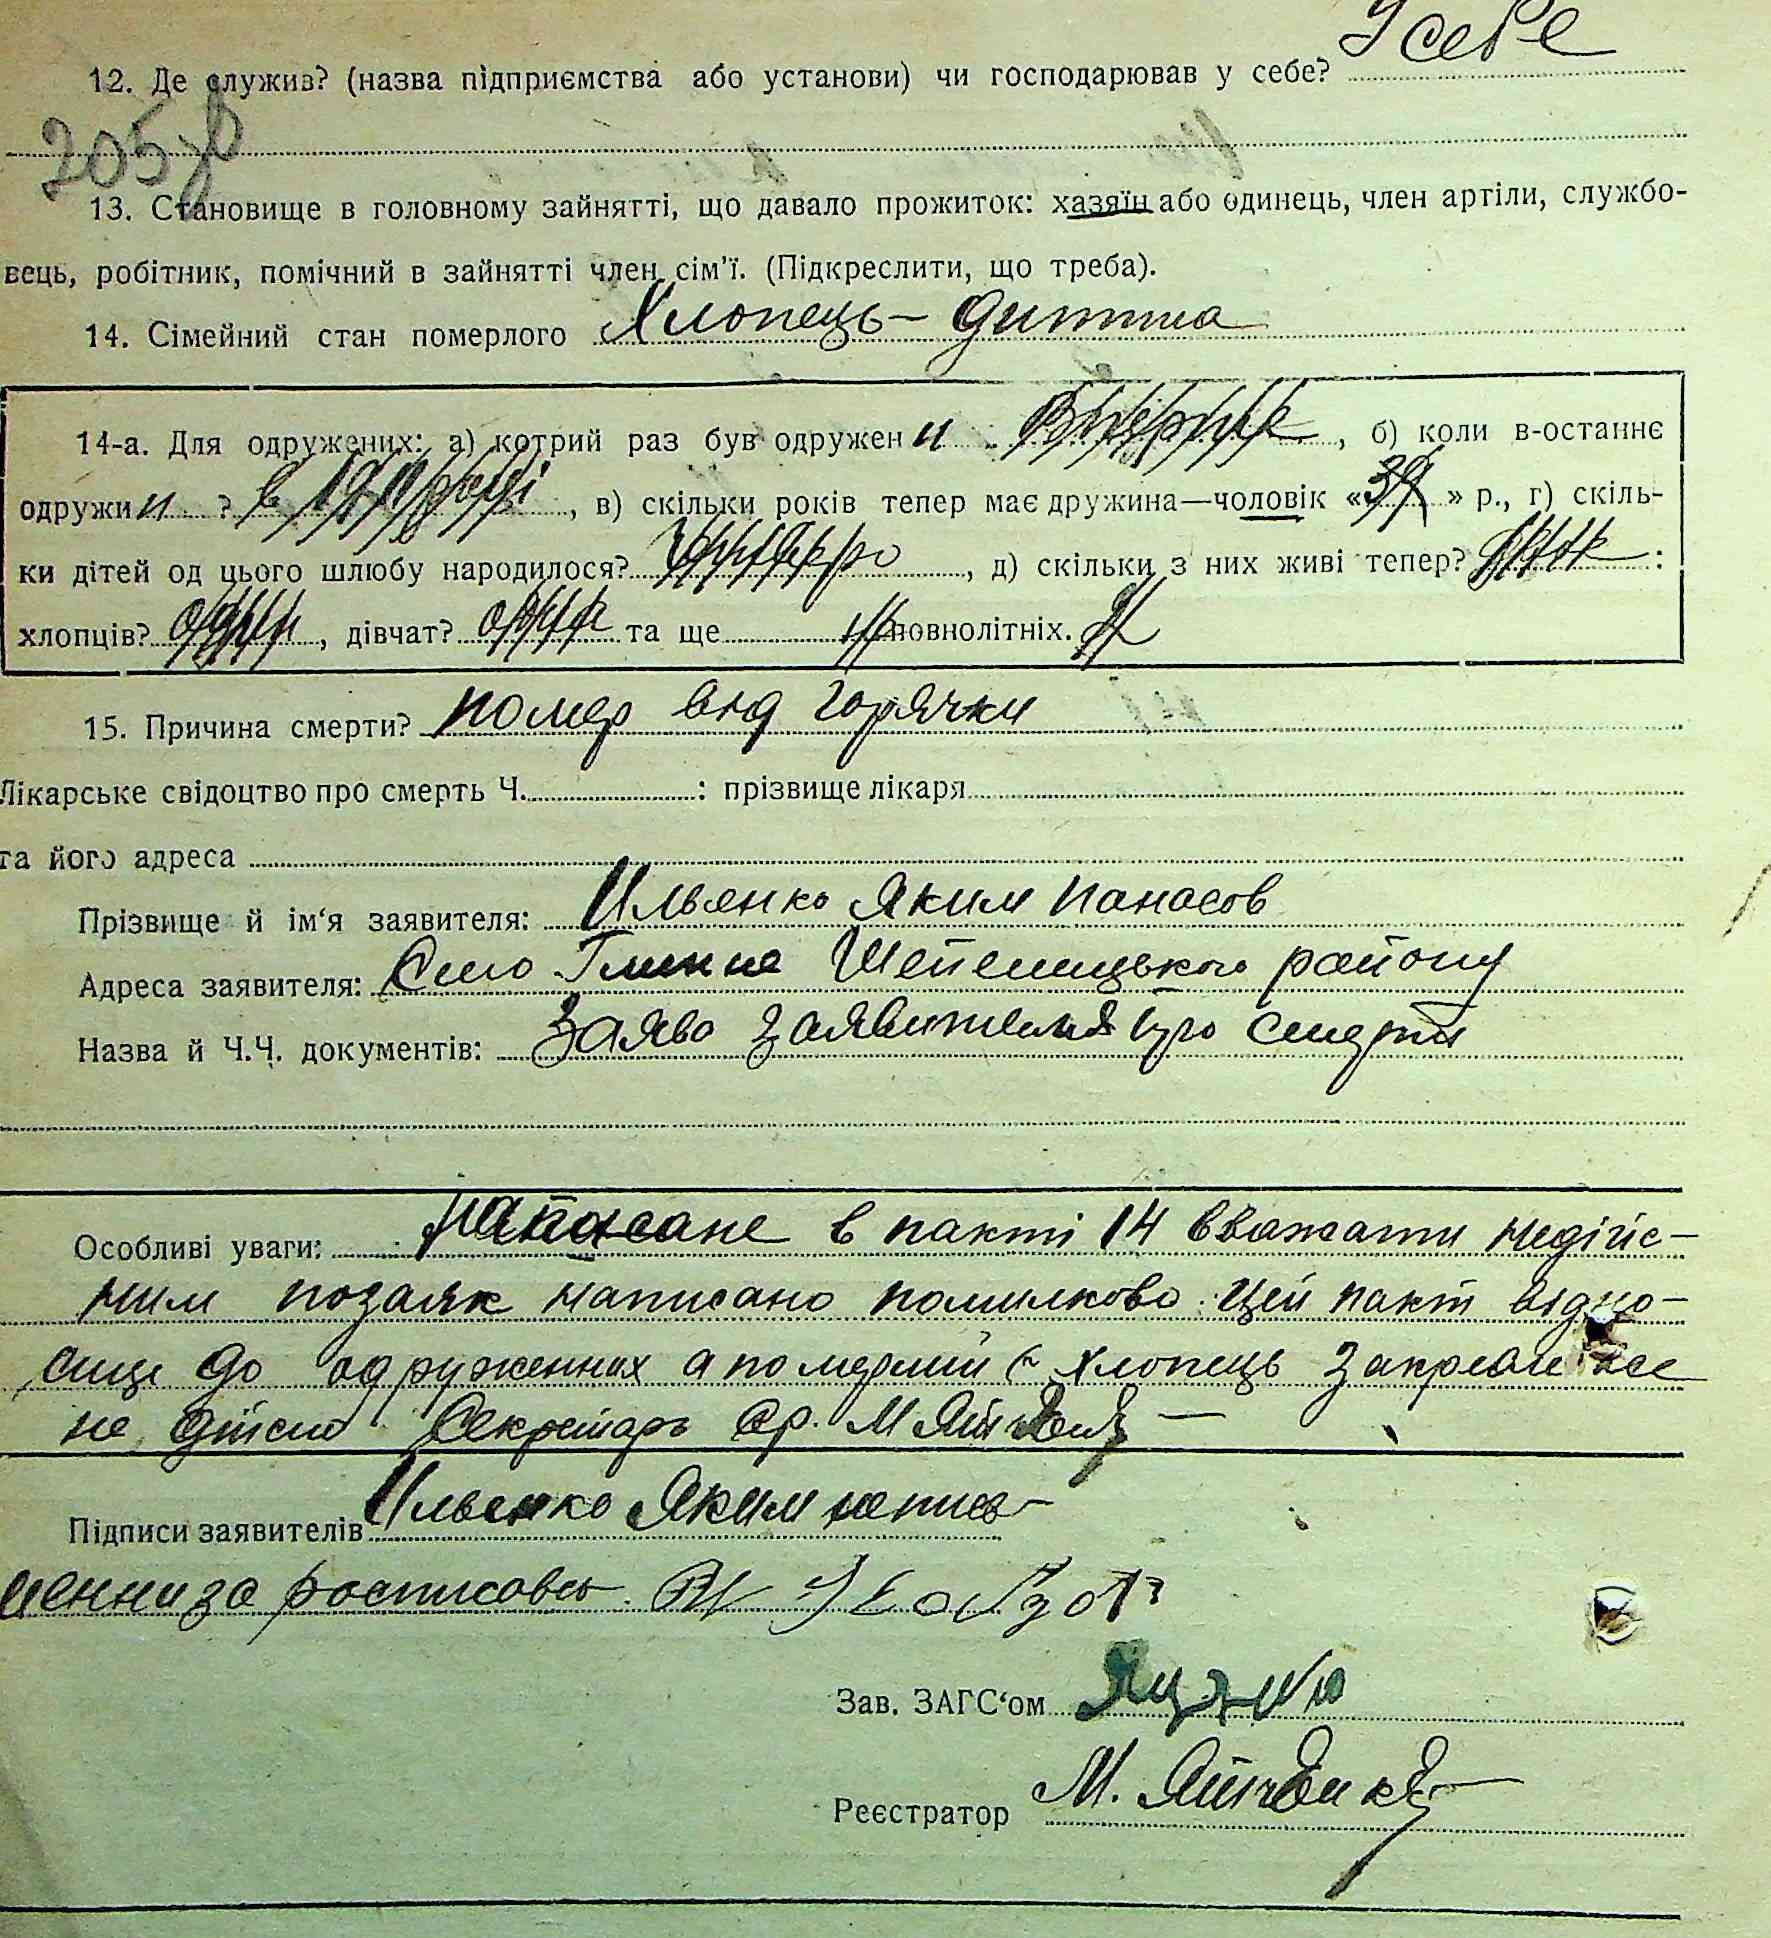 У себе
12. Де служив? (назва підприємства або установи) чи господарював у себе?
205
13. Становище в головному зайнятті, що давало прожиток: хазяїн або одинець, член артіли, службо-
вець, робітник, помічний в зайнятті член сім'ї. (Підкреслити, що треба).
14. Сімейний стан померлого Хлопець - дитина
14-а. Для одружених: а) котрий раз був одружен и , б) коли в-останнє
одружи и ? в , в) скільки років тепер має дружина—чоловік « » р., г) скіль-
ки дітей од цього шлюбу народилося? , д) скільки з них живі тепер? :
хлопців? один, дівчат? та ще повнолітніх.
15. Причина смерти? помер від горячки
Лікарське свідоцтво про смерть Ч. : прізвище лікаря
та його адреса
Прізвище й ім'я заявителя: Ильенко Яким Панасов
Адреса заявителя: Село Глинне району
Назва й Ч.Ч. документів: Заява заявителя про смерть
Особливі уваги: написане в пакті 14 вважати недійс-
ним позаяк написано помилково. Цей пакт відно-
сиця до одруженних а помершій є хлопець
не дійсно Секретарь с/р. М
Підписи заявителів Ильенко Яким непись-
менний за росписовсь
Зав. ЗАГС'ом
Реєстратор М.